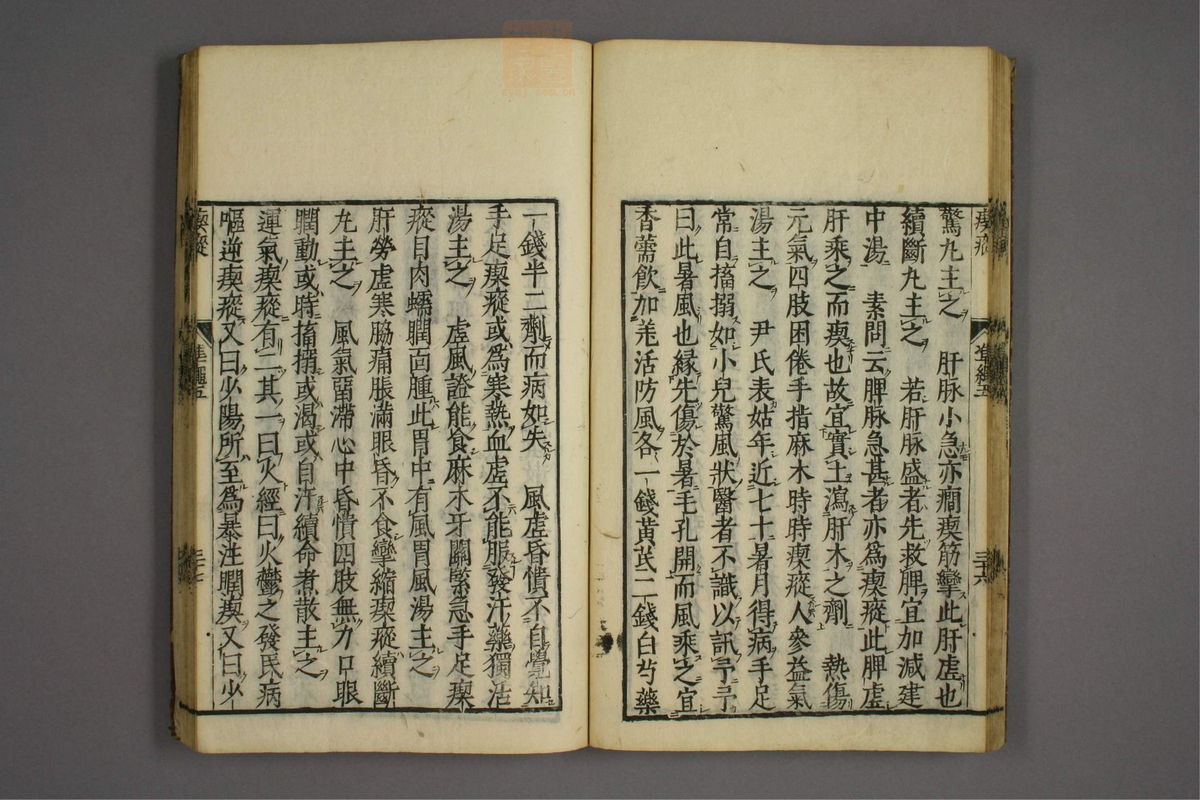 驚丸主之　肝脉小急亦癎瘈筋攣此肝虚也
續斷丸主之　若肝脉盛者先救脾宜加減建
中湯　素問云脾脉急甚者亦爲瘈瘲此脾虚
肝乘之而瘈也故宜實土瀉肝木之劑　熱傷
元氣四肢困倦手指麻木時時瘈瘲人參益氣
湯主之　尹氏表姑年近七十暑月得病手足
常自搐搦如小兒驚風狀醫者不識以訊予予
曰此暑風也縁先傷於暑毛孔開而風乘之宜
香薷飲加羌活防風各一錢黄芪二錢白芍藥
一錢半二劑而病如失　風虚昏憒不自覺知
手足瘈瘲或爲寒熱血虚不能服發汗藥獨活
湯主之　虚風證能食麻木牙關緊急手足瘈
瘲目肉蠕瞤面腫此胃中有風胃風湯主之
肝勞虚寒脇痛脹滿眼昏不食攣縮瘈瘲續斷
丸主之　風氣留滯心中昏憒四肢無力口眼
瞤動或時搐搦或渴或自汗續命煮散主之
運氣瘈瘲有二其一曰火經曰火鬱之發民病
嘔逆瘈瘲又曰少陽所至爲暴注瞤瘈又曰少
瘈瘲
準繩五
三十六
瘈瘲
準繩五
三十七